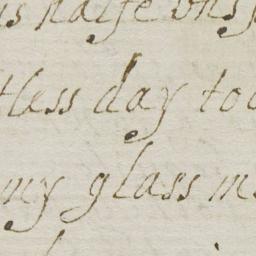 is halfe uns
tless day to
my glass m